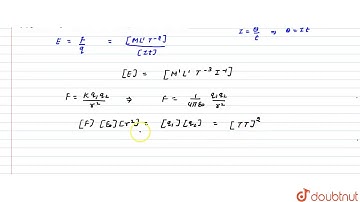 E = F/q = [M L' T⁻²]/[It]
I = q/t ⇒ Q = It
[E] = [M' L' T⁻³ I⁻¹]
F = K q₁ q₂/r² ⇒ F = 1/4πε₀ q₁q₂/r²
[F] [ε₀] [r²] = [q₁] [q₂] = [IT]²
doubtnut